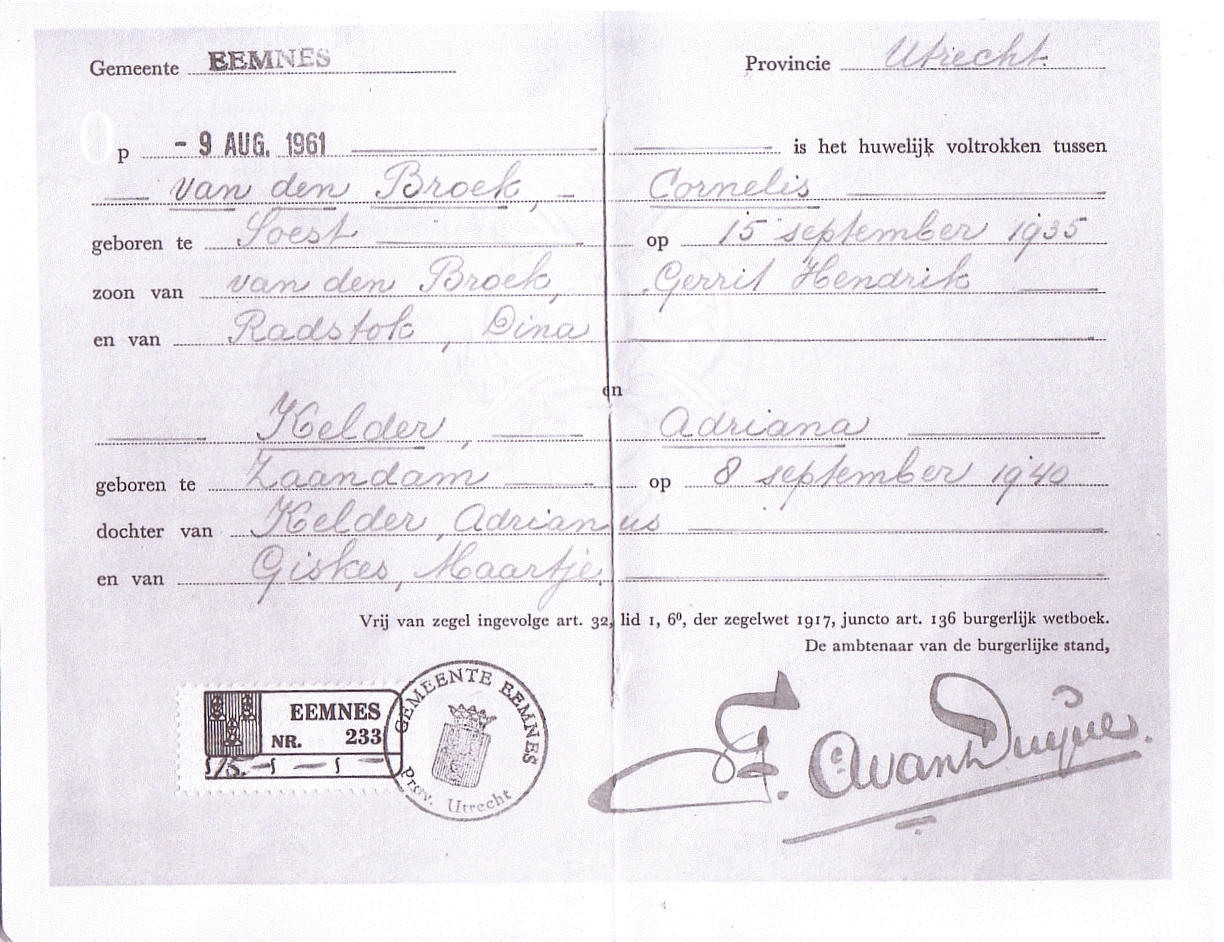 Gemeente EEMNES Provincie Utrecht
Op - 9 AUG. 1961 is het huwelijk voltrokken tussen
van den Broek, Cornelis
geboren te Soest op 15 september 1935
zoon van van den Broek, Gerrit Hendrik
en van Radstok, Dina
en
Kelder, Adriana
geboren te Zaandam op 8 september 1940
dochter van Kelder, Adrianus
en van Giskes, Maartje
Vrij van zegel ingevolge art. 32, lid 1, 6⁰, der zegelwet 1917, juncto art. 136 burgerlijk wetboek.
De ambtenaar van de burgerlijke stand,
EEMNES
NR. 233
GEMEENTE EEMNES
Prov. Utrecht
van Duyne.